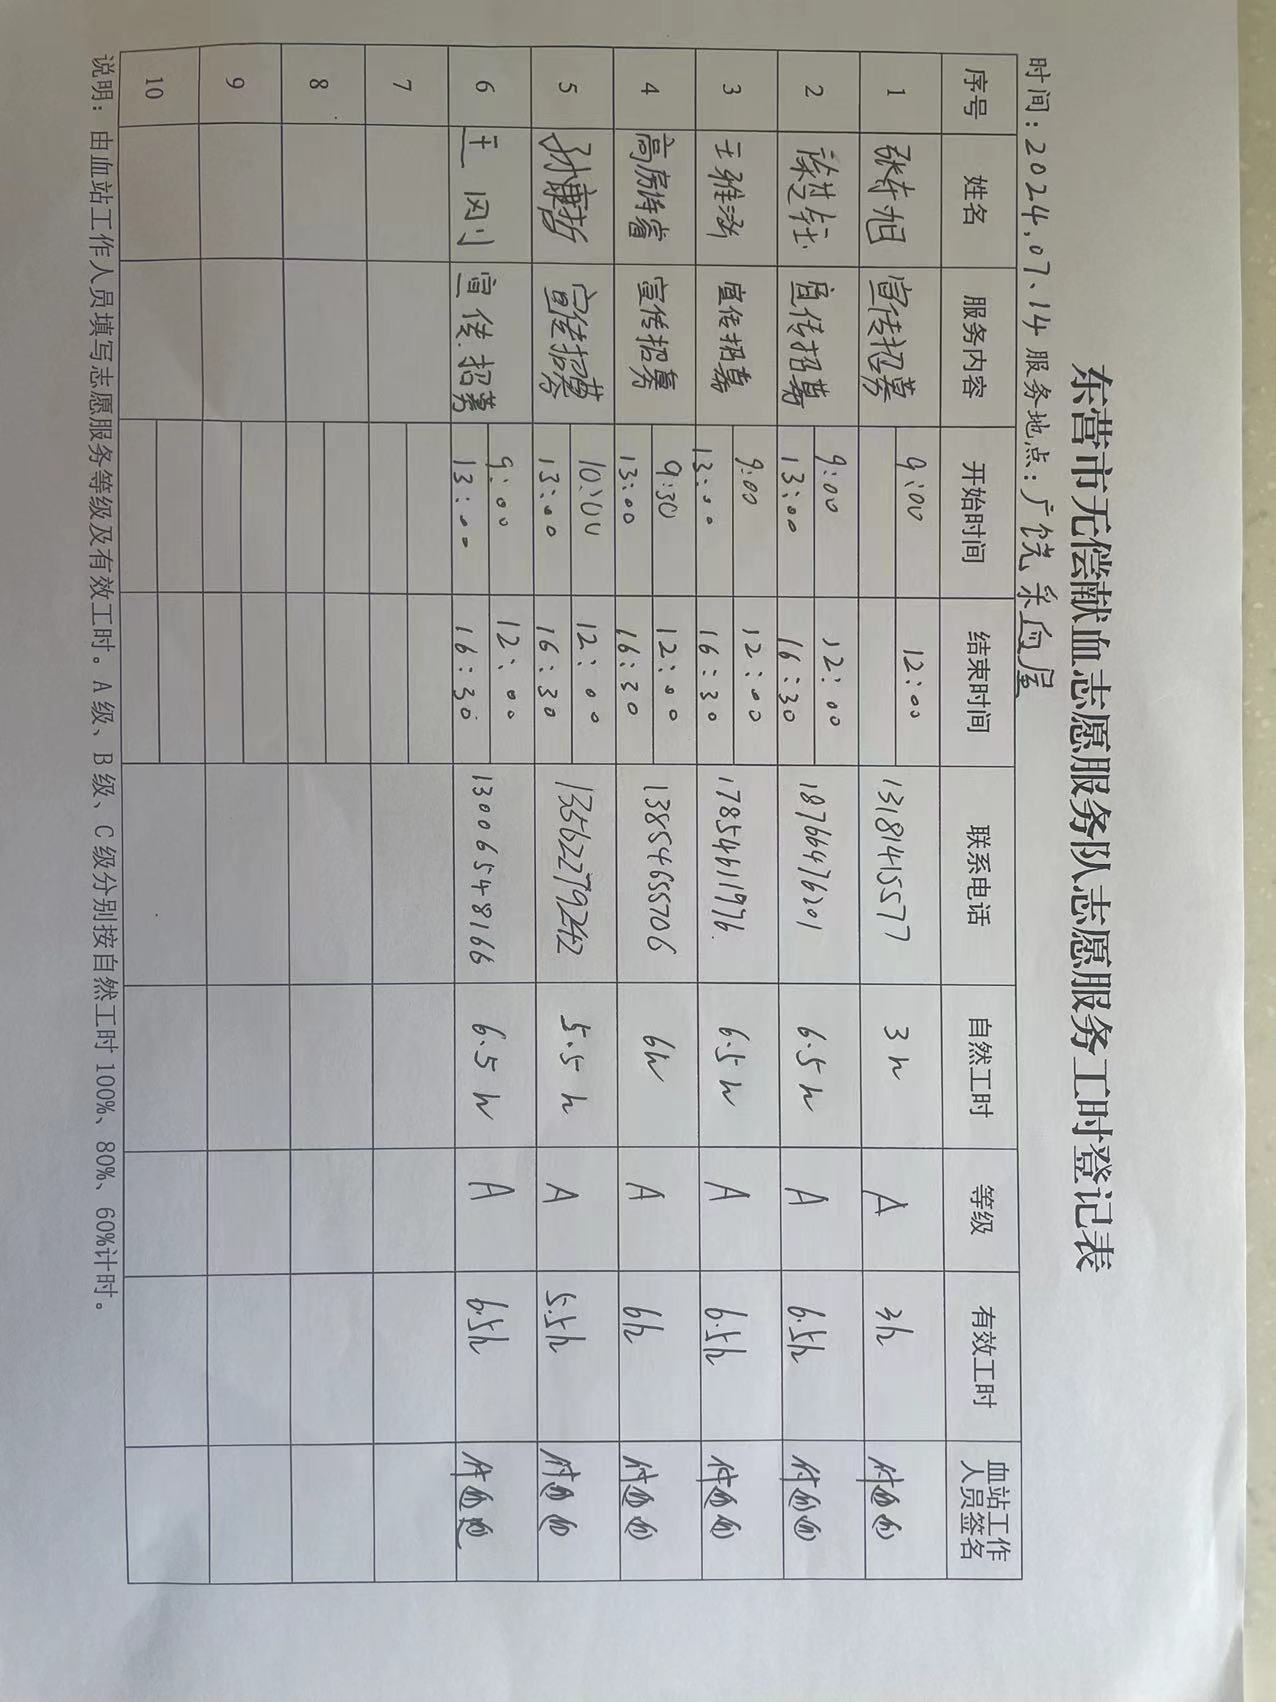 东营市无偿献血志愿服务队志愿服务工时登记表
时间:2024.07.14 服务地点:广饶采血屋
序号 姓名 服务内容 开始时间 结束时间 联系电话 自然工时 等级 有效工时 血站工作人员签名
1 宣传招募 9:00 12:00 13181415577 3h A 3h
2 宣传招募 9:00 12:00 18766476201 6.5h A 6.5h
13:00 16:30
3 王雅涵 宣传招募 9:00 12:00 17854611976 6.5h A 6.5h
13:00 16:30
4 宣传招募 9:30 12:00 13854655706 6h A 6h
13:00 16:30
5 孙康哲 宣传招募 10:00 12:00 13562279242 5.5h A 5.5h
13:00 16:30
6 王刚 宣传招募 9:00 12:00 13006548166 6.5h A 6.5h
13:00 16:30
7
8
9
10
说明:由血站工作人员填写志愿服务等级及有效工时。A级、B级、C级分别按自然工时100%、80%、60%计时。